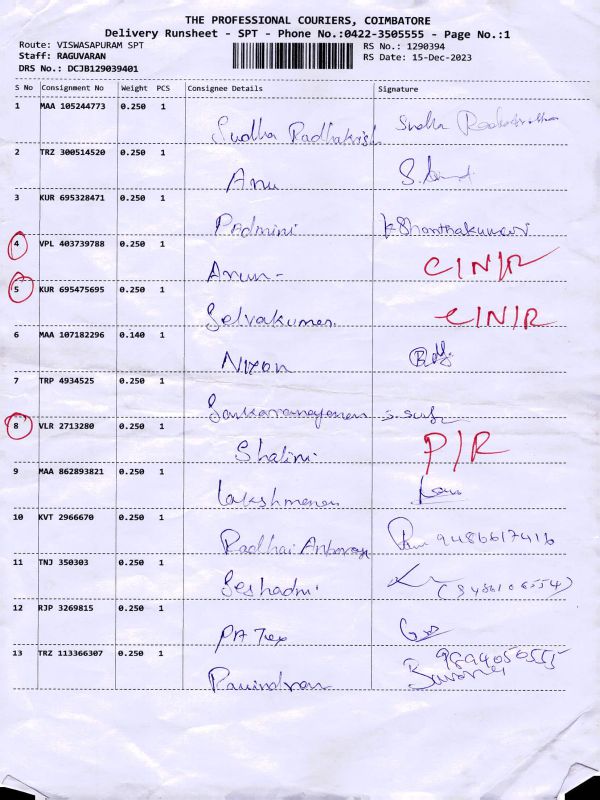 THE PROFESSIONAL COURIERS, COIMBATORE
Delivery Runsheet - SPT - Phone No.:0422-3505555 - Page No.:1
Route: VISWASAPURAM SPT
RS No.: 1290394
Staff: RAGUVARAN
RS Date: 15-Dec-2023
DRS No.: DCJB129039401
S No Consignment No Weight PCS Consignee Details Signature
1 MAA 105244773 0.250 1
Sudha Radhakrish
2 TRZ 300514520 0.250 1
Anu
3 KUR 695328471 0.250 1
Padmini K Shanthakumari
4 VPL 403739788 0.250 1
Arun- C/N/R
5 KUR 695475695 0.250 1
Selvakumar C/N/R
6 MAA 107182296 0.140 1
Nixon
7 TRP 4934525 0.250 1
Sankaranarayanan
8 VLR 2713280 0.250 1
Shalini P/R
9 MAA 862893821 0.250 1
Lakshmanan
10 KVT 2966670 0.250 1
Radhai 9486617416
11 TNJ 350303 0.250 1
Seshadri
12 RJP 3269815 0.250 1
PA Tex
13 TRZ 113366307 0.250 1
9894050555
Ravindran